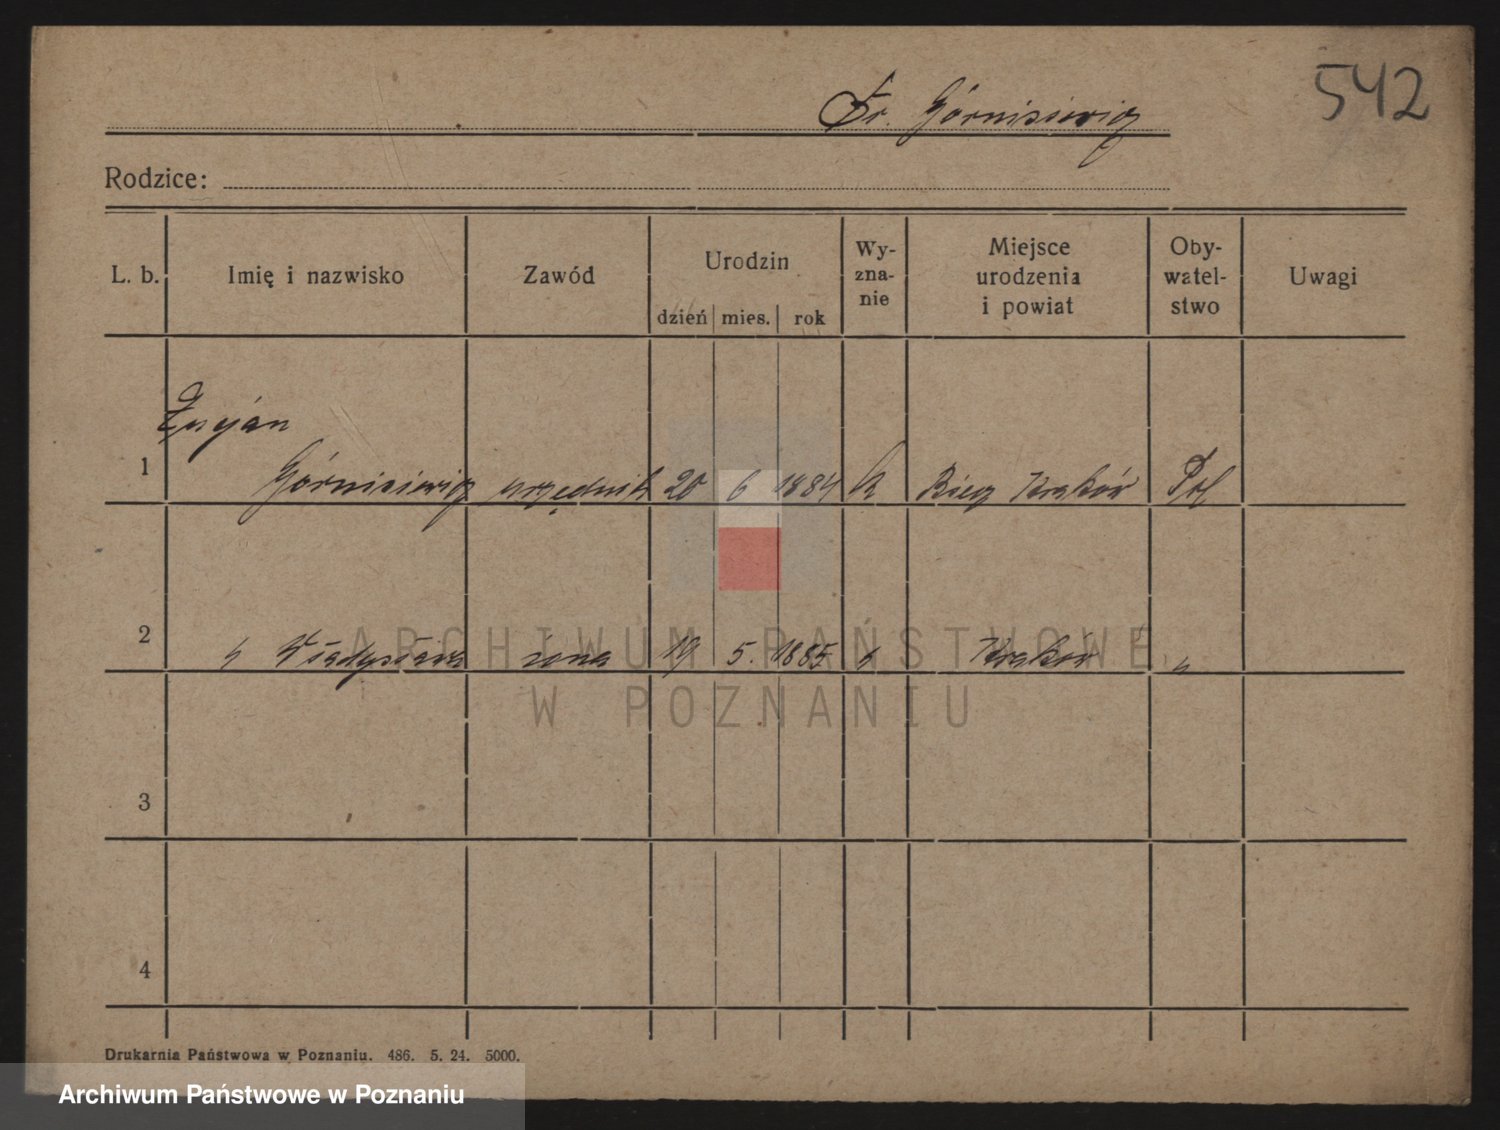 542
Fr. Górnisiewicz
Rodzice:
L. b. Imię i nazwisko Zawód Urodzin dzień mies. rok Wy-zna-nie Miejsce urodzenia i powiat Oby-watel-stwo Uwagi
Łucjan
1 Górnisiewicz urzędnik 20 6 1884 k Kraków Pol
2 " Władysława żona 19 5. 1885 " Kraków "
3
4
Drukarnia Państwowa w Poznaniu. 486. 5. 24. 5000.
ARCHIWUM PAŃSTWOWE
W POZNANIU
Archiwum Państwowe w Poznaniu